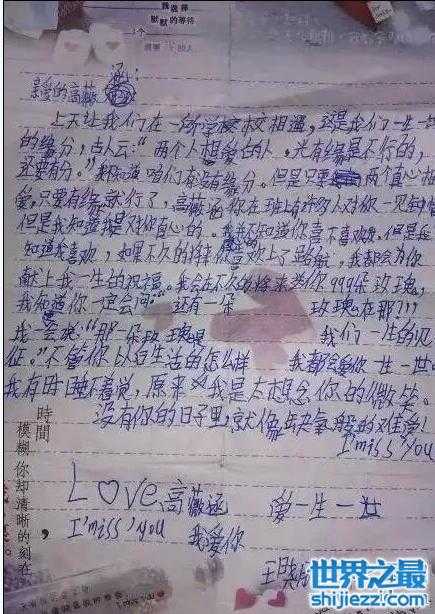 我选择
默默的等待
亲爱的高薇涵:
上天让我们在一所学校相遇,这是我们一生一世
的缘分,古人云:“两个人相爱的人。光有缘是不行的,
还要有分。”我知道咱们有没有缘分。但是只要两个真心相
爱,只要有缘就行了,高薇涵你在班上有许多人对你一见钟情
但是我知道我是对你真心的。我不知道你喜不喜欢我,但是我
知道我喜欢,如果不久的将来你喜欢上了别人,我都会为你
献上我一生的祝福。我会在不久的将来送你999朵玫瑰,
我知道你一定会问“还有一朵 玫瑰在那???
我会说:“那一朵玫瑰是 我们一生的见
征。”不管你以后生活的怎么样 我都会爱你一世一世。
我有时睡不着觉,原来 我是太想念你的微笑。
没有你的日子里就像缺氧般的难受!
I'miss You
Love高薇涵 爱一生一世
I'miss You 我爱你
時間,
模糊你却清晰的刻在
世界之最
www.shijiezzi.com